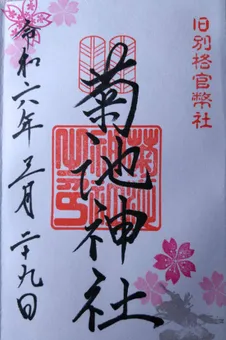 旧別格官幣社
菊池神社
令和六年三月二十九日